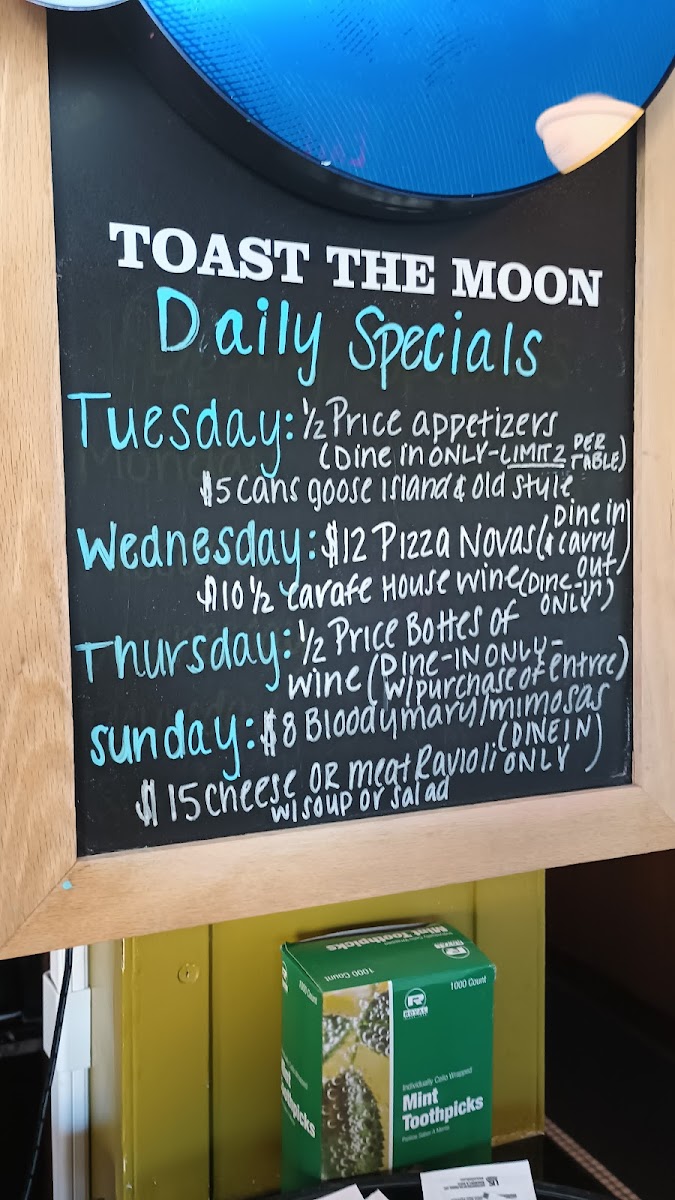 TOAST THE MOON
Daily Specials
Tuesday: 1/2 Price appetizers
(Dine in ONLY-LIMIT 2 PER TABLE)
$5 cans goose island & old style
Wednesday: $12 Pizza Novas (Dine in & carry out)
$10 1/2 carafe House wine (Dine-in ONLY)
Thursday: 1/2 Price Bottles of
wine (DINE-IN ONLY-
w/purchase of entree)
sunday: $8 Bloodymary/mimosas
(DINE IN ONLY)
$15 cheese OR meat Ravioli
w/soup or salad
Mint Toothpicks
1000 Count
1000 Count
1000 Count
R
ROYAL
Individually Cello Wrapped
Mint
Toothpicks
Mint
Toothpicks